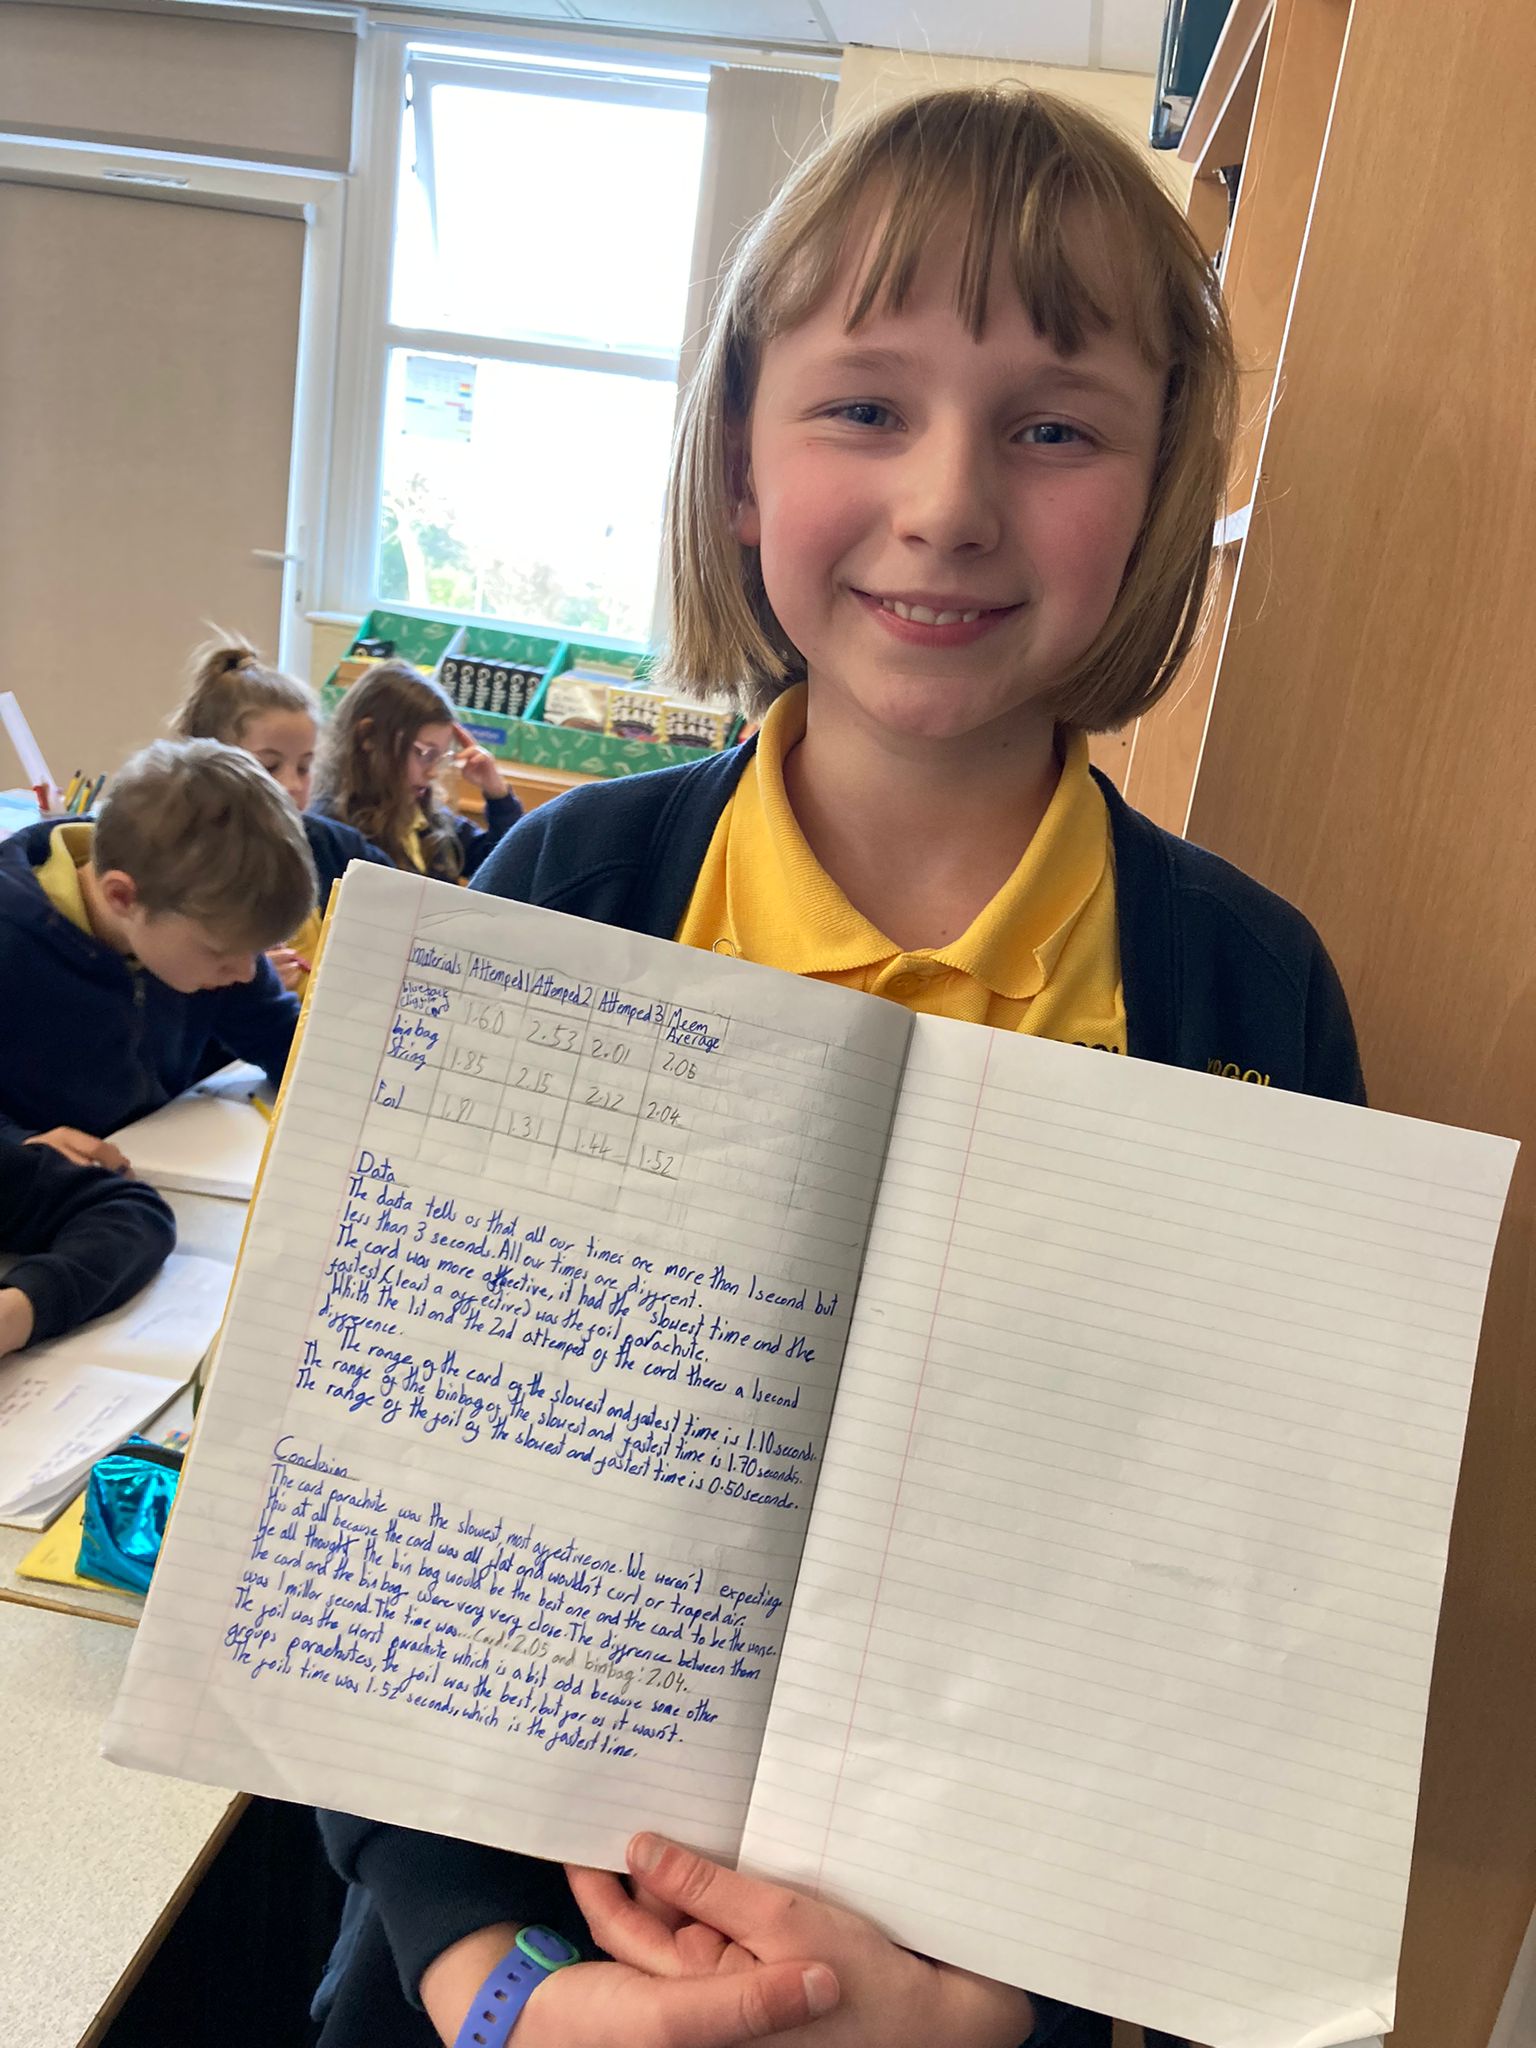 Materials Attemped 1 Attemped 2 Attemped 3 Meem Average
card 1.60 2.53 2.01 2.05
bin bag
String 1.85 2.15 2.12 2.04
Foil 1.81 1.31 1.44 1.52
Data
The daata tells os that all our times are more than 1 second but
less than 3 seconds. All our times are diffrent.
The card was more affective, it had the slowest time and the
fastest (least a affective) was the foil parachute.
Whith the 1st and the 2nd attemped of the card theres a 1 second
diffrence.
The range of the card of the slowest and fastest time is 1.10 seconds.
The range of the binbag of the slowest and fastest time is 1.70 seconds.
The range of the foil of the slowest and fastest time is 0.50 seconds.
Conclusion
The card parachute was the slowest, most affective one. We weren't expecting
this at all because the card was all flat and wouldn't curl or traped air.
We all thought the bin bag would be the best one and the card to be the worse.
The card and the binbag were very very close. The diffrence between them
was 1 millor second. The time was... Card: 2.05 and binbag: 2.04.
The foil was the worst parachute which is a bit odd because some other
groups parachutes, the foil was the best, but for us it wasn't.
The foils time was 1.52 seconds, which is the fastest time.